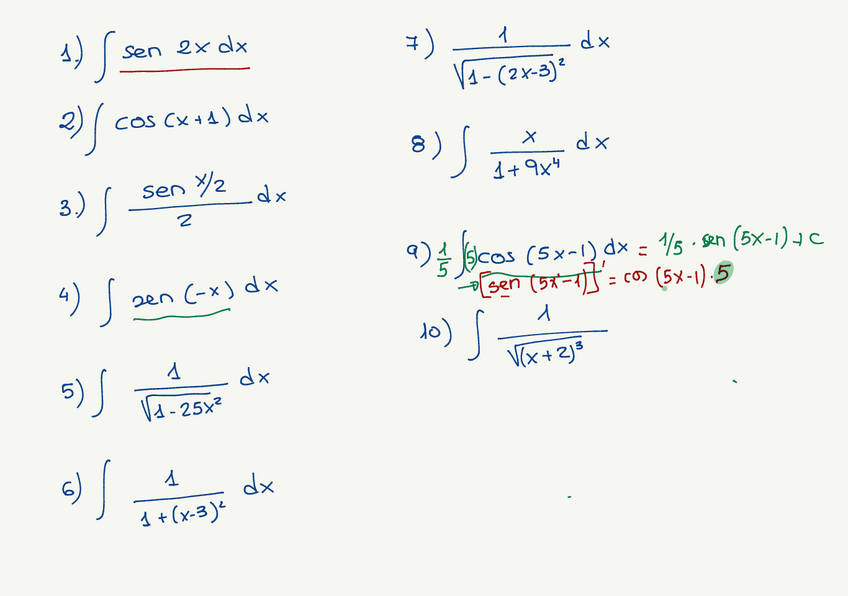 1.) ∫ sen 2x dx
2) ∫ cos (x+1) dx
3.) ∫ (sen x/2)/2 dx
4) ∫ sen (-x) dx
5) ∫ 1/√(1-25x²) dx
6) ∫ 1/(1+(x-3)²) dx
7) 1/√(1-(2x-3)²) dx
8) ∫ x/(1+9x⁴) dx
9) 1/5 ∫ (5) cos (5x-1) dx = 1/5 · sen (5x-1) + C
→ [sen (5x-1)]' = cos (5x-1) · 5
10) ∫ 1/√((x+2)³)